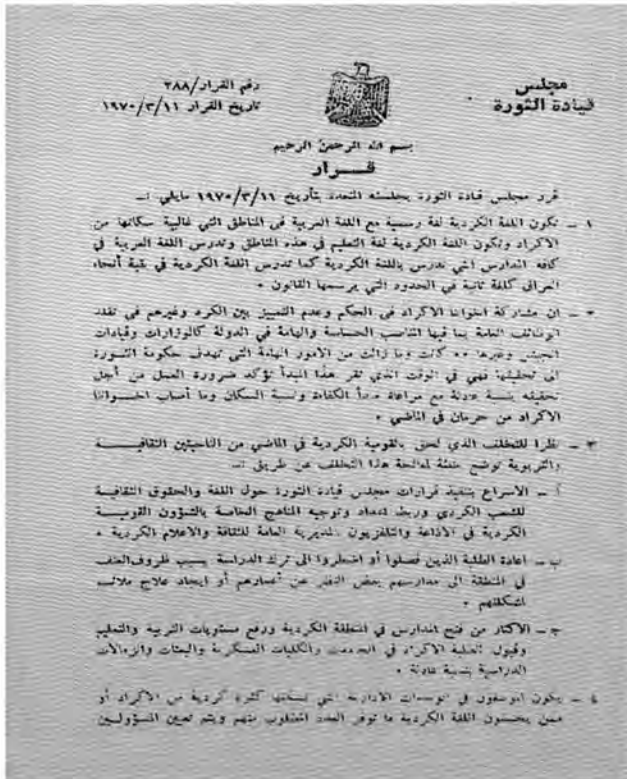 مجلس
قيادة الثورة
رقم القرار/٢٨٨
تاريخ القرار ١٩٧٠/٣/١١
بسم الله الرحمن الرحيم
قـــرار
قرر مجلس قيادة الثورة بجلسته المنعقدة بتأريخ ١٩٧٠/٣/١١ مايلي :ـ
١ ـ تكون اللغة الكردية لغة رسمية مع اللغة العربية في المناطق التي غالبية سكانها من
الاكراد وتكون اللغة الكردية لغة التعليم في هذه المناطق وتدرس اللغة العربية في
كافة المدارس التي تدرس باللغة الكردية كما تدرس اللغة الكردية في بقية أنحاء
العراق كلغة ثانية في الحدود التي يرسمها القانون ٠
٢ ـ ان مشاركة اخواننا الاكراد في الحكم وعدم التمييز بين الكرد وغيرهم في تقلد
الوظائف العامة بما فيها المناصب الحساسة والهامة في الدولة كالوزارات وقيادات
الجيش وغيرها ٠٠ كانت وما زالت من الامور الهامة التي تهدف حكومة الثـورة
الى تحقيقها فهي في الوقت الذي تقر هذا المبدأ تؤكد ضرورة العمل من أجل
تحقيقه بنسبة عادلة مع مراعاة مبدأ الكفاءة ونسبة السكان وما أصاب اخـــواننا
الاكراد من حرمان في الماضي ٠
٣ ـ نظرا للتخلف الذي لحق بالقومية الكردية في الماضي من الناحيتين الثقافيـــة
والتربوية توضع خطة لمعالجة هذا التخلف عن طريق :ـ
أ ـ الاسراع بتنفيذ قرارات مجلس قيادة الثورة حول اللغة والحقوق الثقافية
للشعب الكردي وربط اعداد وتوجيه المناهج الخاصة بالشؤون القوميـــة
الكردية في الاذاعة والتلفزيون بالمديرية العامة للثقافة والاعلام الكردية ٠
ب ـ اعادة الطلبة الذين فصلوا أو اضطروا الى ترك الدراسة بسبب ظروف العنف
في المنطقة الى مدارسهم بغض النظر عن أعمارهم أو ايجاد علاج ملائـــم
لمشكلتهم ٠
جـ ـ الاكثار من فتح المدارس في المنطقة الكردية ورفع مستويات التربية والتعليم
وقبول الطلبة الاكراد في الجامعات والكليات العسكرية والبعثات والزمالات
الدراسية بنسبة عادلة ٠
٤ ـ يكون الموظفون في الوحدات الادارية التي تسكنها كثرة كردية من الاكراد أو
ممن يحسنون اللغة الكردية ما توفر العدد المطلوب منهم ويتم تعيين المسؤولــين